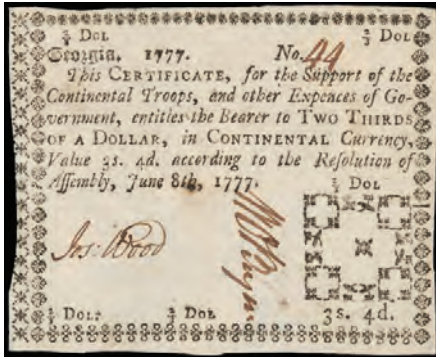 ⅔ Dol ⅔ Dol
Georgia, 1777. No. 44
This CERTIFICATE, for the Support of the
Continental Troops, and other Expences of Go-
vernment, entitles the Bearer to TWO THIRDS
OF A DOLLAR, in CONTINENTAL Currency,
Value 3s. 4d. according to the Reſolution of
Aſſembly, June 8th, 1777.
⅔ Dol
Jas: Wood
⅔ Dol: ⅔ Dol 3s. 4d.